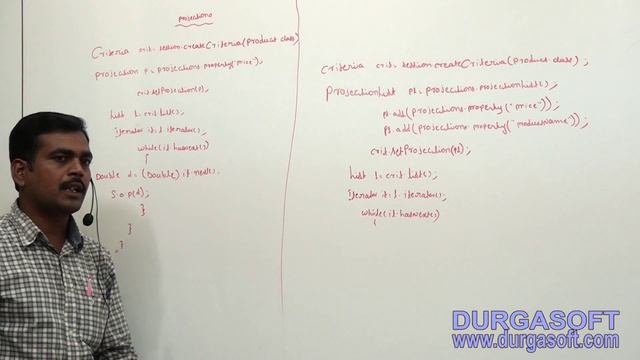 projections
Criteria crit = session.createCriteria(product.class)
projection p = projections.property("price");
crit.setProjection(p);
List l = crit.list();
Iterator it = l.iterator();
while(it.hasnext())
{
Double d = (Double) it.next();
S.o.p(d);
}
}
}
Criteria crit = session.createCriteria(product.class);
ProjectionList pl = projections.projectionList();
pl.add(projections.property("price"));
pl.add(projections.property("productName"));
crit.setProjection(pl);
List l = crit.list();
Iterator it = l.iterator();
while(it.hasnext())
{
DURGASOFT
www.durgasoft.com